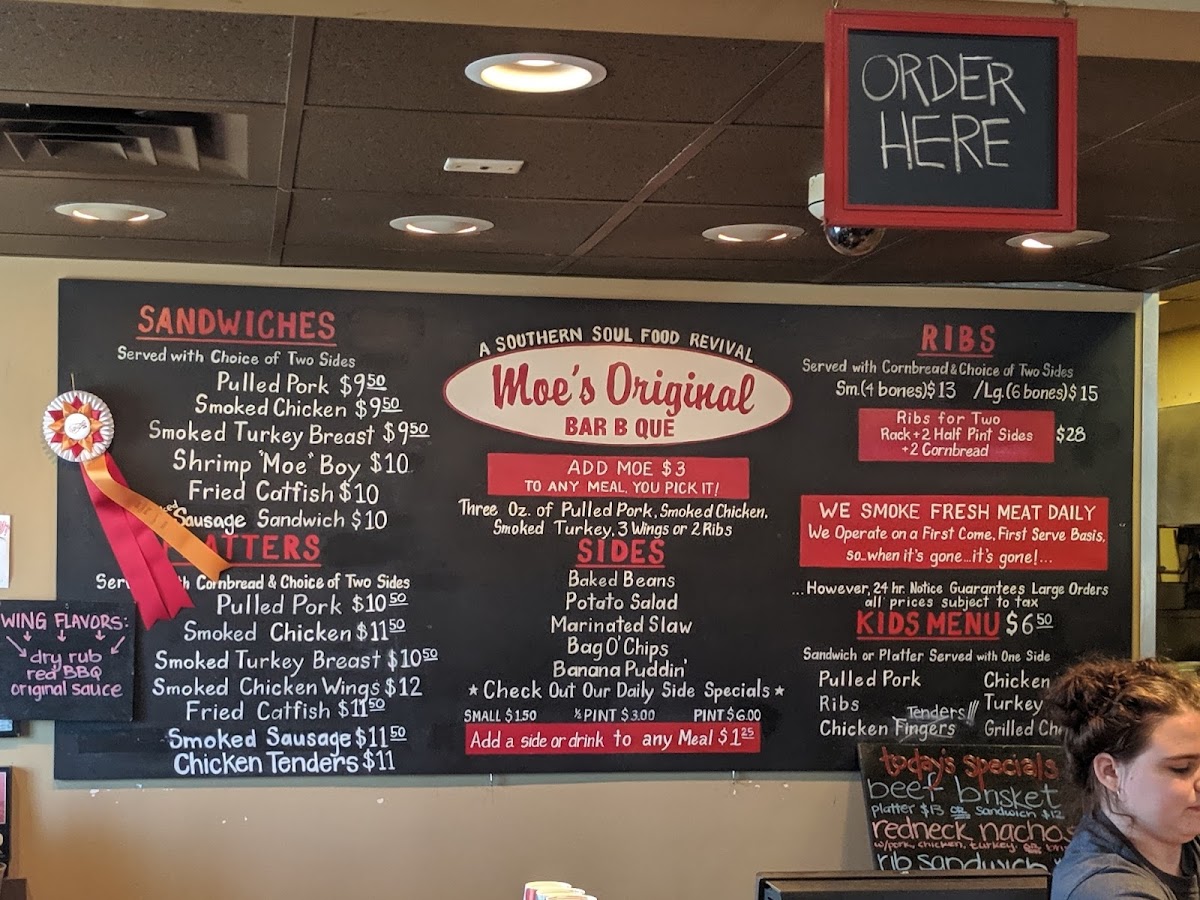 ORDER
HERE
SANDWICHES
Served with Choice of Two Sides
Pulled Pork $950
Smoked Chicken $950
Smoked Turkey Breast $950
Shrimp "Moe" Boy $10
Fried Catfish $10
Sausage Sandwich $10
ATTERS
Cornbread & Choice of Two Sides
Pulled Pork $1050
Smoked Chicken $1150
Smoked Turkey Breast $1050
Smoked Chicken Wings $12
Fried Catfish $1150
Smoked Sausage $1150
Chicken Tenders $11
WING FLAVORS:
dry rub
red BBQ
original sauce
A SOUTHERN SOUL FOOD REVIVAL
Moe's Original
BAR B QUE
ADD MOE $3
TO ANY MEAL, YOU PICK IT!
Three Oz. of Pulled Pork, Smoked Chicken,
Smoked Turkey, 3 Wings or 2 Ribs
SIDES
Baked Beans
Potato Salad
Marinated Slaw
Bag O' Chips
Banana Puddin'
★ Check Out Our Daily Side Specials ★
SMALL $1.50 ½ PINT $3.00 PINT $6.00
Add a side or drink to any Meal $125
RIBS
Served with Cornbread & Choice of Two Sides
Sm. (4 bones) $13 /Lg. (6 bones) $15
Ribs for Two
Rack + 2 Half Pint Sides $28
+2 Cornbread
WE SMOKE FRESH MEAT DAILY
We Operate on a First Come, First Serve Basis,
so...when it's gone...it's gone!...
...However, 24 hr. Notice Guarantees Large Orders
all prices subject to tax
KIDS MENU $650
Sandwich or Platter Served with One Side
Pulled Pork Chicken
Ribs Turkey
Tenders!!!
Chicken Fingers Grilled
today's specials
beef brisket
platter $13 or sandwich $12
redneck nachos
w/pork, chicken, turkey, or
rib sandwich